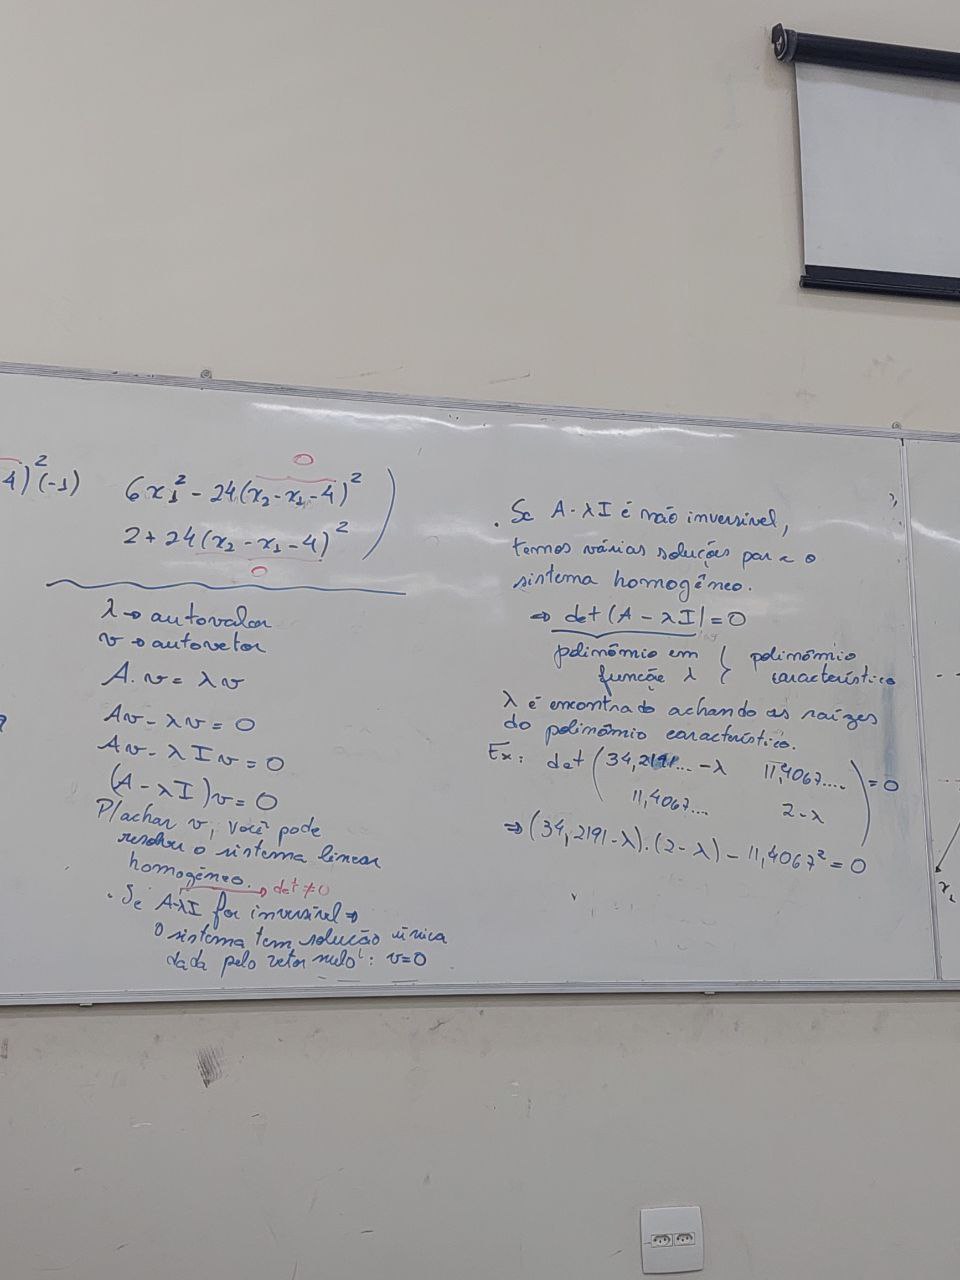 4)²(-1)
0
6x₁² - 24(x₂-x₁-4)²
2+24(x₂-x₁-4)²
0
λ → autovalor
v → autovetor
A.v = λv
Av - λv = 0
Av - λIv = 0
(A - λI)v = 0
P/achar v, você pode
resolver o sistema linear
homogêneo. → det ≠ 0
. Se A-λI for inversível →
o sistema tem solução única
dada pelo vetor nulo: v=0
. Se A-λI é não inversível,
temos várias soluções para o
sistema homogêneo.
⇒ det(A - λI) = 0
polinômio em } polinômio
função λ } característico
λ é encontrado achando as raízes
do polinômio característico.
Ex: det (34,2191... -λ 11,4067...
11,4067... 2-λ) = 0
⇒ (34,2191-λ).(2-λ) - 11,4067² = 0